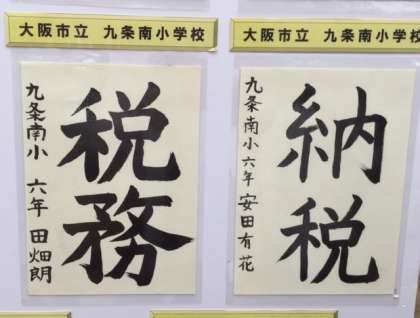 大阪市立 九条南小学校
税務
九条南小 六年 田畑朗
大阪市立 九条南小学校
納税
九条南小 六年 安田有花